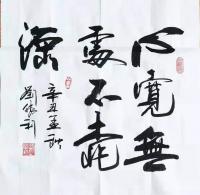 心寬無
處不桃
源
辛丑孟秋
劉利